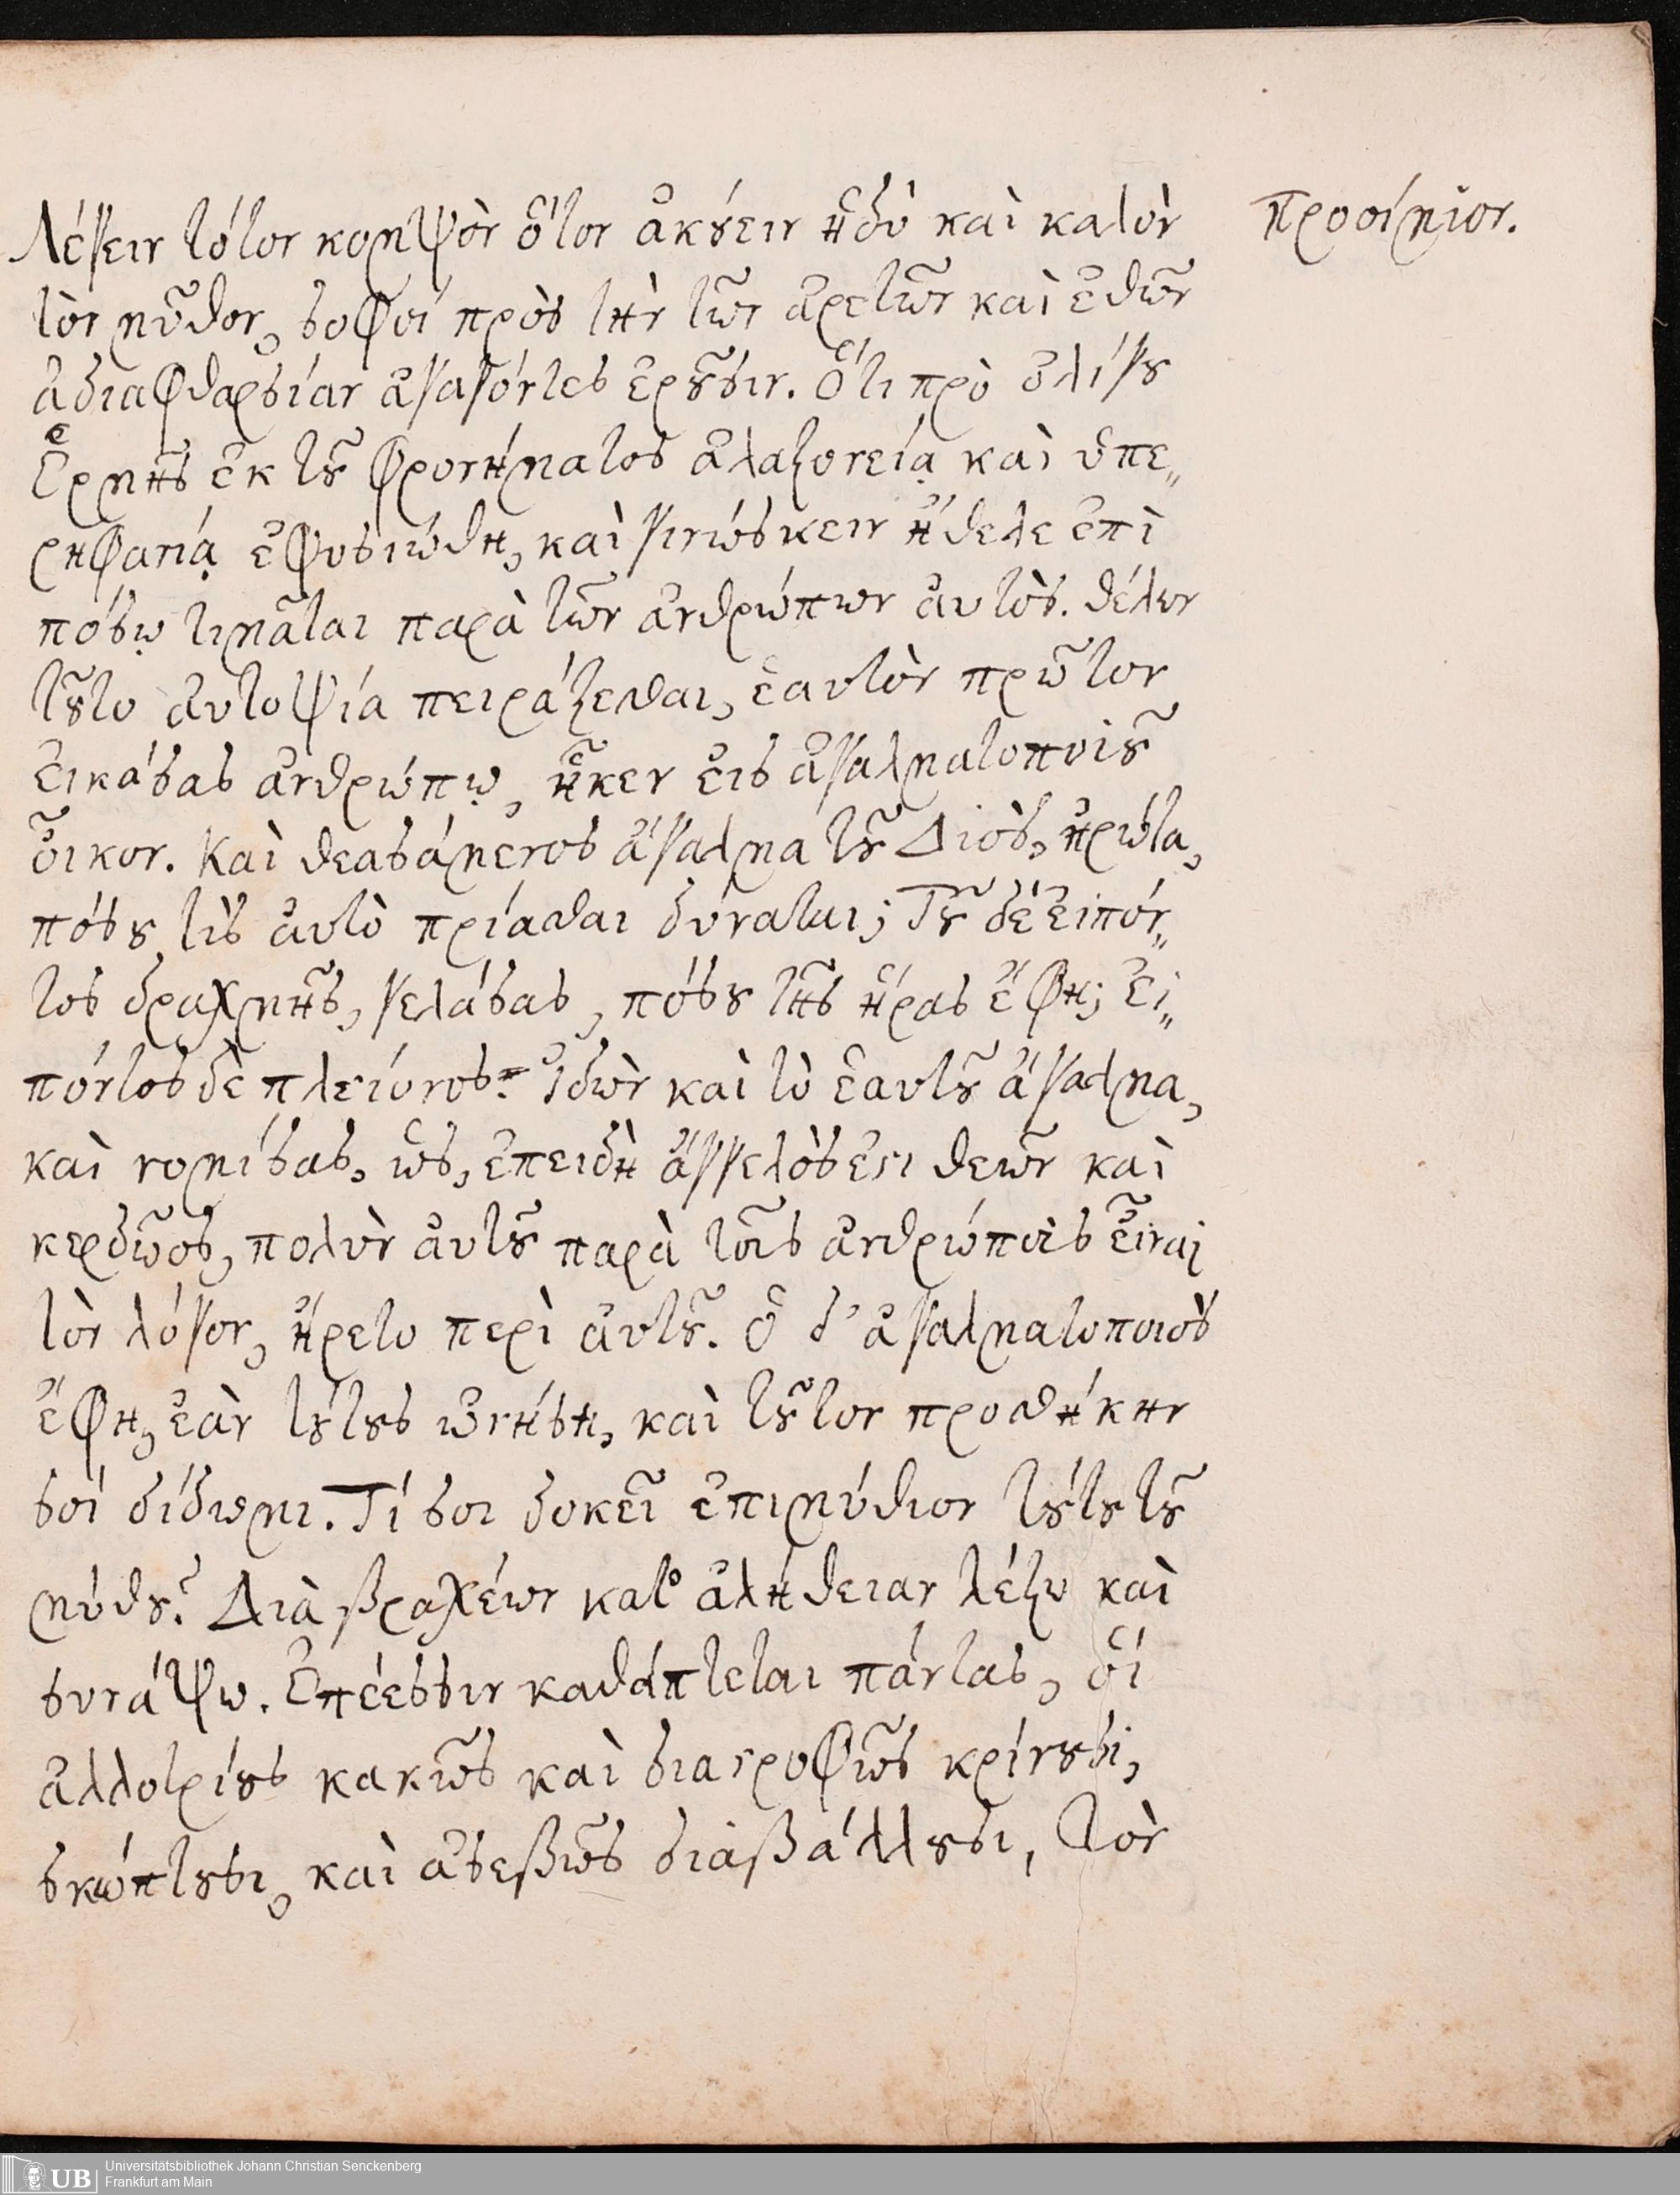 Λέγειν τότον κομψὸν ὅτον ἀκούειν ἡδύ καὶ καλὸν
τὸν μῦθον, σοφοί πρὸς τὴν τῶν ἀρετῶν καὶ ἐθῶν
ἀδιαφθαρσίαν ἀγαγόντες ἐροῦσιν. Ὅτι πρὸ ὀλίγου
Ἑρμῆς ἐκ τοῦ φρονήματος ἀλαζονείᾳ καὶ ὑπε„
ρηφανίᾳ ἐφυσιώθη, καὶ γινώσκειν ἤθελε ἐπὶ
πόσῳ τιμᾶται παρὰ τῶν ἀνθρώπων ἀυτὸς. θέλων
τοῦτο ἀυτοψία πειράζεσθαι, ἑαυτὸν πρῶτον
ἐικάσας ἀνθρώπῳ, ἧκεν ἐις ἀγαλματοποιοῦ
ὅικον. Καὶ θεασάμενος ἄγαλμα τοῦ Διὸς, ἠρώτα,
πόσου τὶς ἀυτὸ πρίασθαι δύναται; Τοῦ δέ ἐιπόν„
τος δραχμῆς, γελάσας, πόσου τῆς ἥρας ἔφη; Ἐι„
πόντος δὲ πλείονος. Ἰδὼν καὶ τὸ ἑαυτοῦ ἄγαλμα,
καὶ νομίσας, ὡς, ἐπειδὴ ἄγγελὸς ἐστι θεῶν καὶ
κερδῶος, πολὺν ἀυτοῦ παρὰ τοῖς ἀνθρώποις ἐῖναι
τὸν λόγον, ἤρετο περὶ ἀυτοῦ. Ὁ δ' ἀγαλματοποιὸς
ἔφη, ἐὰν τούτους ὠνήση, καὶ τοῦτον προσθήκην
σοί δίδωμι. Τί σοι δοκεῖ ἐπιμύθιον τούτου τοῦ
μύθου? Διὰ βραχέων κατ' ἀλήθειαν λέξω καὶ
συνάψω. Ἐπέεσσιν καθάπτεται πάντας, ὅι
ἀλλοτρίους κακῶς καὶ διαστροφῶς κρίνουσι,
σκώπτουσι, καὶ ἀσεβῶς διαβάλλουσι, τὸν
προοίμιον.
Universitätsbibliothek Johann Christian Senckenberg
Frankfurt am Main
UB